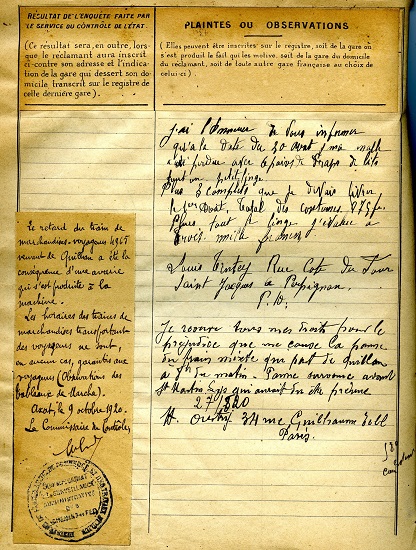 RÉSULTAT DE L'ENQUÊTE FAITE PAR
LE SERVICE DU CONTRÔLE DE L'ÉTAT.
(Ce résultat sera, en outre, lors-
que le réclamant aura inscrit
ci-contre son adresse et l'indica-
tion de la gare qui dessert son do-
micile transcrit sur le registre de
cette dernière gare).
PLAINTES OU OBSERVATIONS
(Elles peuvent être inscrites sur le registre, soit de la gare où
s'est produit le fait qui les motive, soit de la gare du domicile
du réclamant, soit de toute autre gare française au choix de
celui-ci)
j'ai l'honneur de vous informer
qu'à la date du 30 août, ma malle
perdue avec 6 paires de draps de lits
linge
3 complets que je devais livrer
le 1er août. total des costumes 875 f.
tout le linge j'évalue à
trois mille francs
Louis Rue Cote du Four
Saint Jacques à Perpignan.
P. O.
Je réserve tous mes droits pour le
préjudice que me cause la panne
du train mixte qui part de Quillan
à du matin. Panne survenue avant
St Martin Lys qui aurait du être prévue
27/8/20
34 rue Guillaume Tell
Paris.
Le retard du train de
marchandises-voyageurs
venant de Quillan a été la
conséquence d'une avarie
qui s'est produite à la
machine.
Les horaires des trains de
marchandises transportant
des voyageurs ne sont,
en aucun cas, garantis aux
voyageurs (Observations des
tableaux de marche).
Axat, 9 octobre 1920.
Le Commissaire du Contrôle,